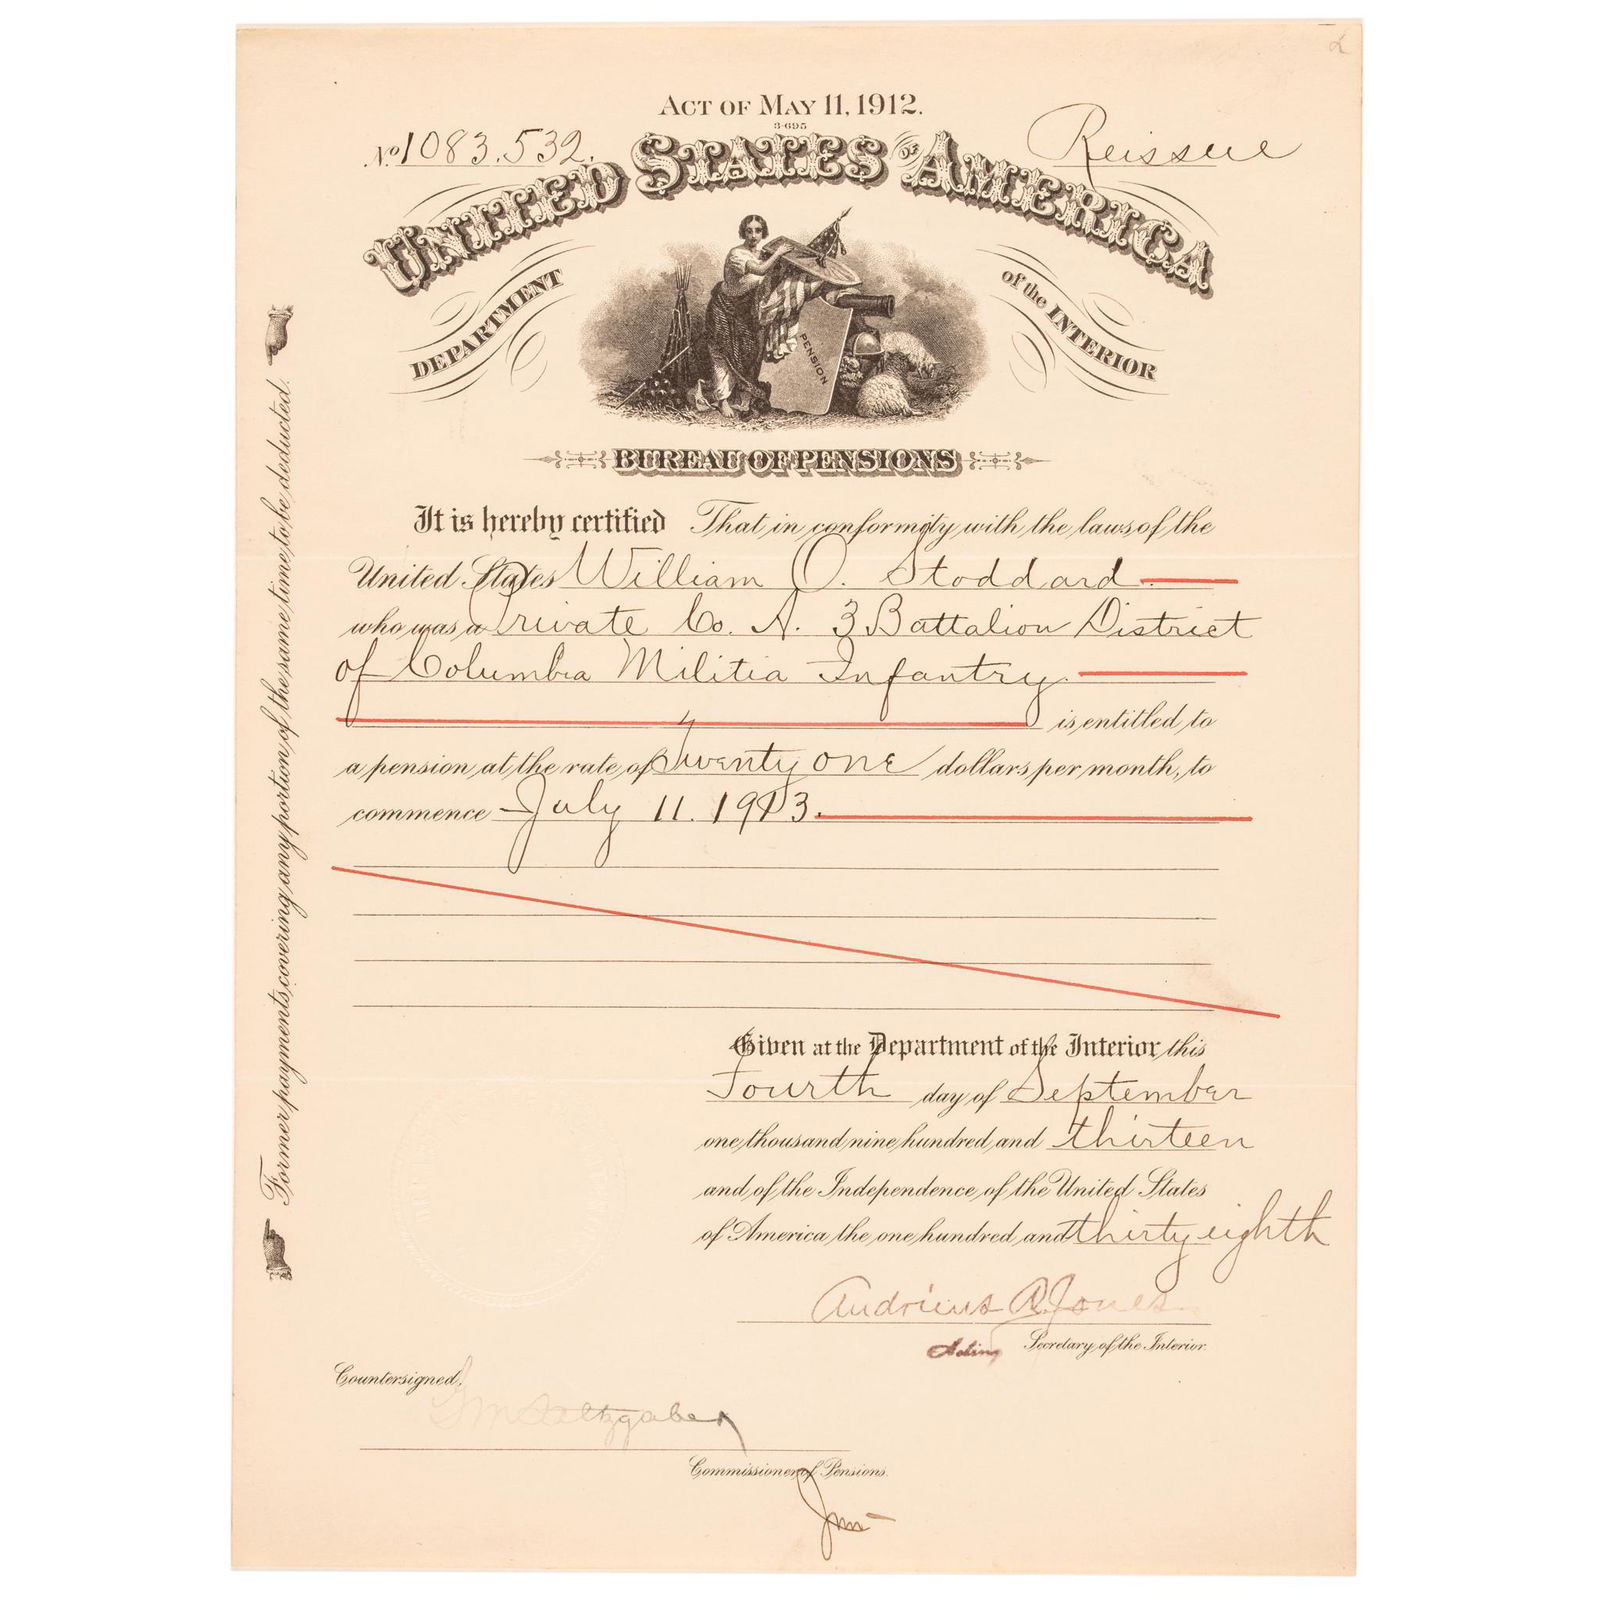 ACT OF MAY 11, 1912.
3-695
No. 1083.532.
Reissue
UNITED STATES OF AMERICA
DEPARTMENT of the INTERIOR
PENSION
BUREAU OF PENSIONS
It is hereby certified That in conformity with the laws of the
United States William O. Stoddard
who was a Private Co. A. 3 Battalion District
of Columbia Militia Infantry.
is entitled to
a pension at the rate of Twenty one dollars per month, to
commence July 11. 1913.
Given at the Department of the Interior this
Fourth day of September
one thousand nine hundred and thirteen
and of the Independence of the United States
of America the one hundred and thirty eighth
Andrieus A. Jones
Acting Secretary of the Interior.
Countersigned,
G M Saltzgaber
Commissioner of Pensions.
Former payments covering any portion of the same time to be deducted.